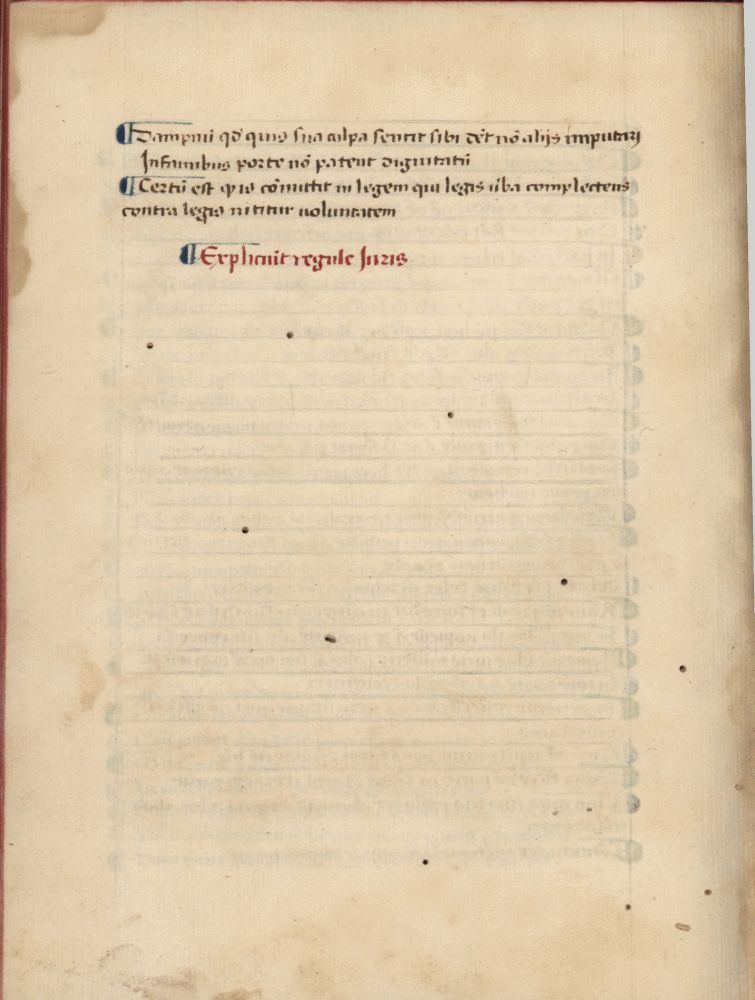 ¶ Dampnū qd' quis sua culpa sentit sibi dēt nō alijs imputarj
Infamibus porte nō patent dignitatū
¶ Certū est qꝫ is cōmittit in legem qui legis ūba complectens
contra legis nititur uoluntatem
¶ Expliciūt regule Juris